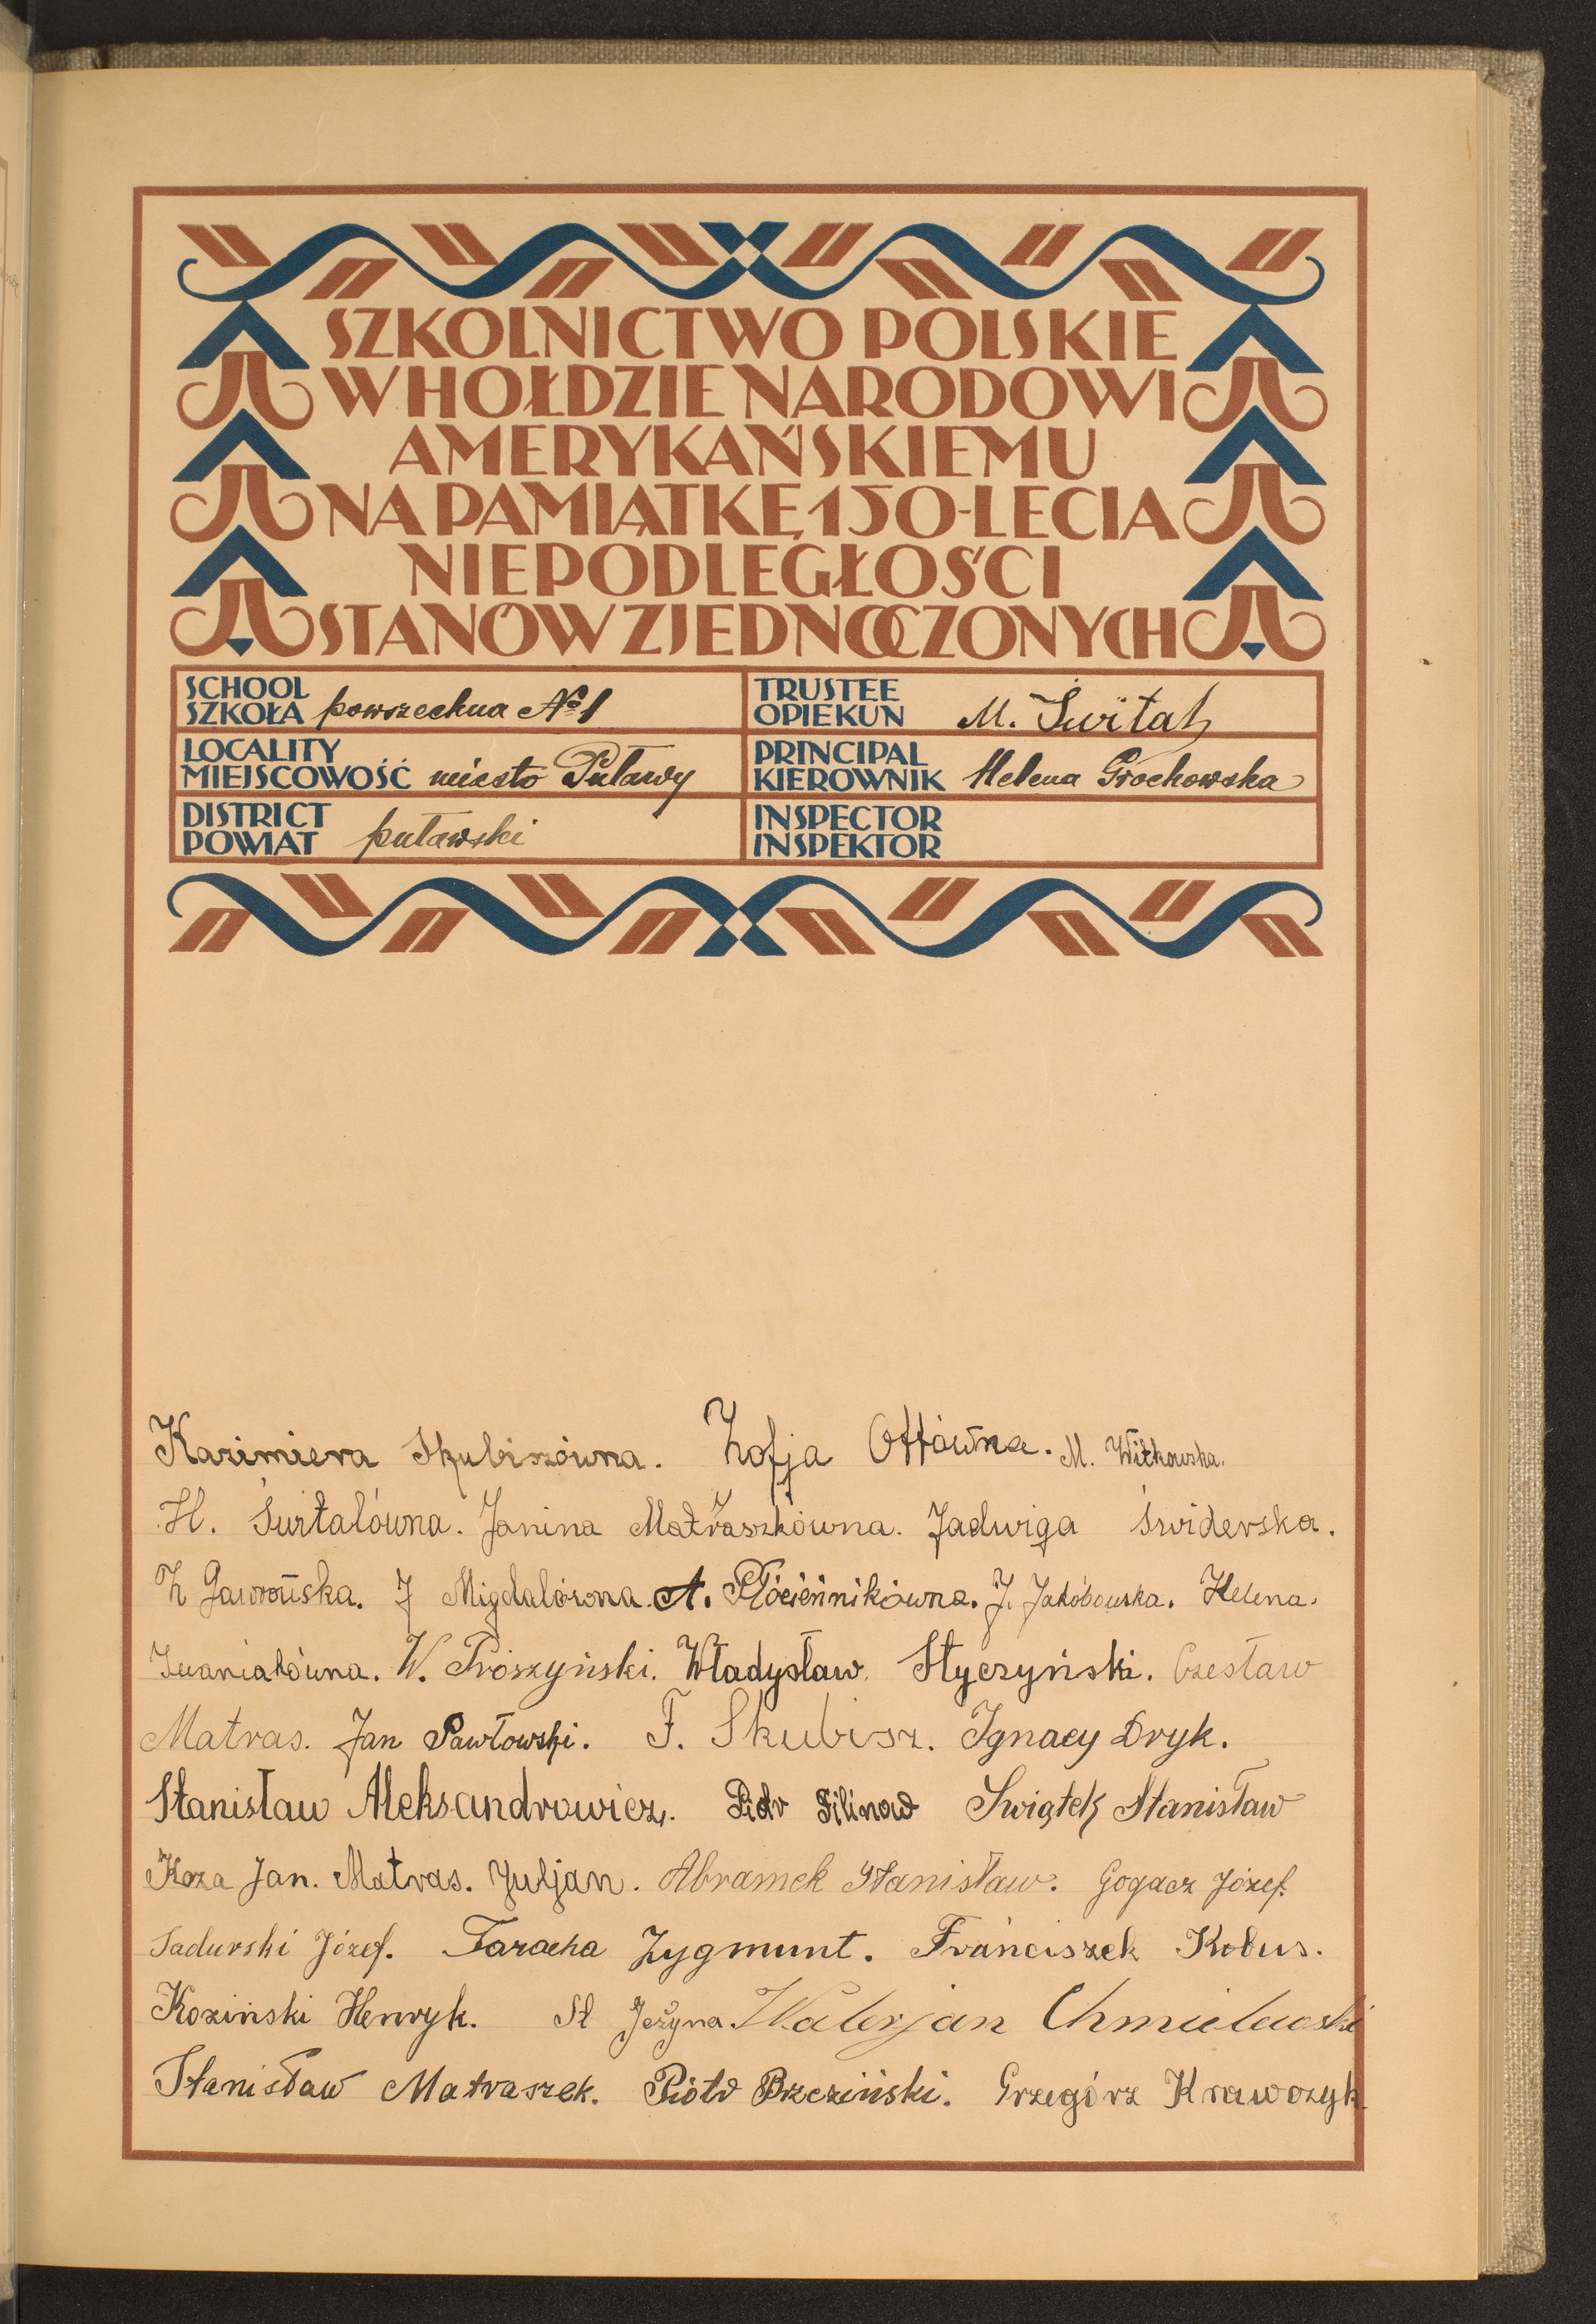 SZKOLNICTWO POLSKIE
W HOŁDZIE NARODOWI
AMERYKAŃSKIEMU
NA PAMIĄTKĘ 150-LECIA
NIEPODLEGŁOŚCI
STANÓW ZJEDNOCZONYCH
SCHOOL
SZKOŁA powszechna № 1
TRUSTEE
OPIEKUN M. Świtał
LOCALITY
MIEJSCOWOŚĆ miasto Puławy
PRINCIPAL
KIEROWNIK Helena Grochowska
DISTRICT
POWIAT puławski
INSPECTOR
INSPEKTOR
Kazimiera Skubiszówna. Zofja Ottówna. M. Witkowska.
H. Świtalówna. Janina Matraszkówna. Jadwiga Świderska.
Z Gaworska. J Migdalówna. A. Płóciennikówna. J. Jakóbowska. Helena.
Iwaniakówna. W. Prószyński. Władysław Styczyński. Czesław
Matras. Jan Pawłowski. F. Skubisz. Ignacy Dryk.
Stanisław Aleksandrowicz. Piotr Filinow Swiątek Stanisław
Koza Jan. Matras. Juljan. Abramek Stanisław. Gogacz Józef.
Sadurski Józef. Taracha Zygmunt. Franciszek Kobus.
Koziński Henryk. St Jeżyna. Walerjan Chmielewski
Stanisław Matraszek. Piotr Brzeziński. Grzegórz Krawczyk